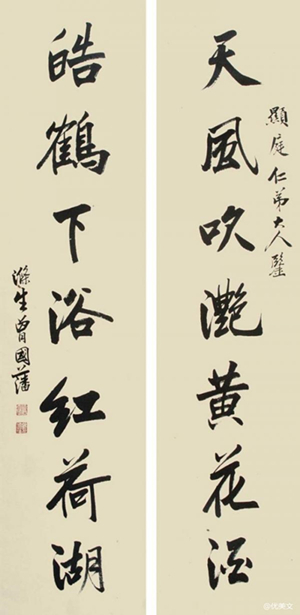 天風吹灔黄花酒
顯庭仁弟大人鑒
皓鶴下浴紅荷湖
滌生曾國藩